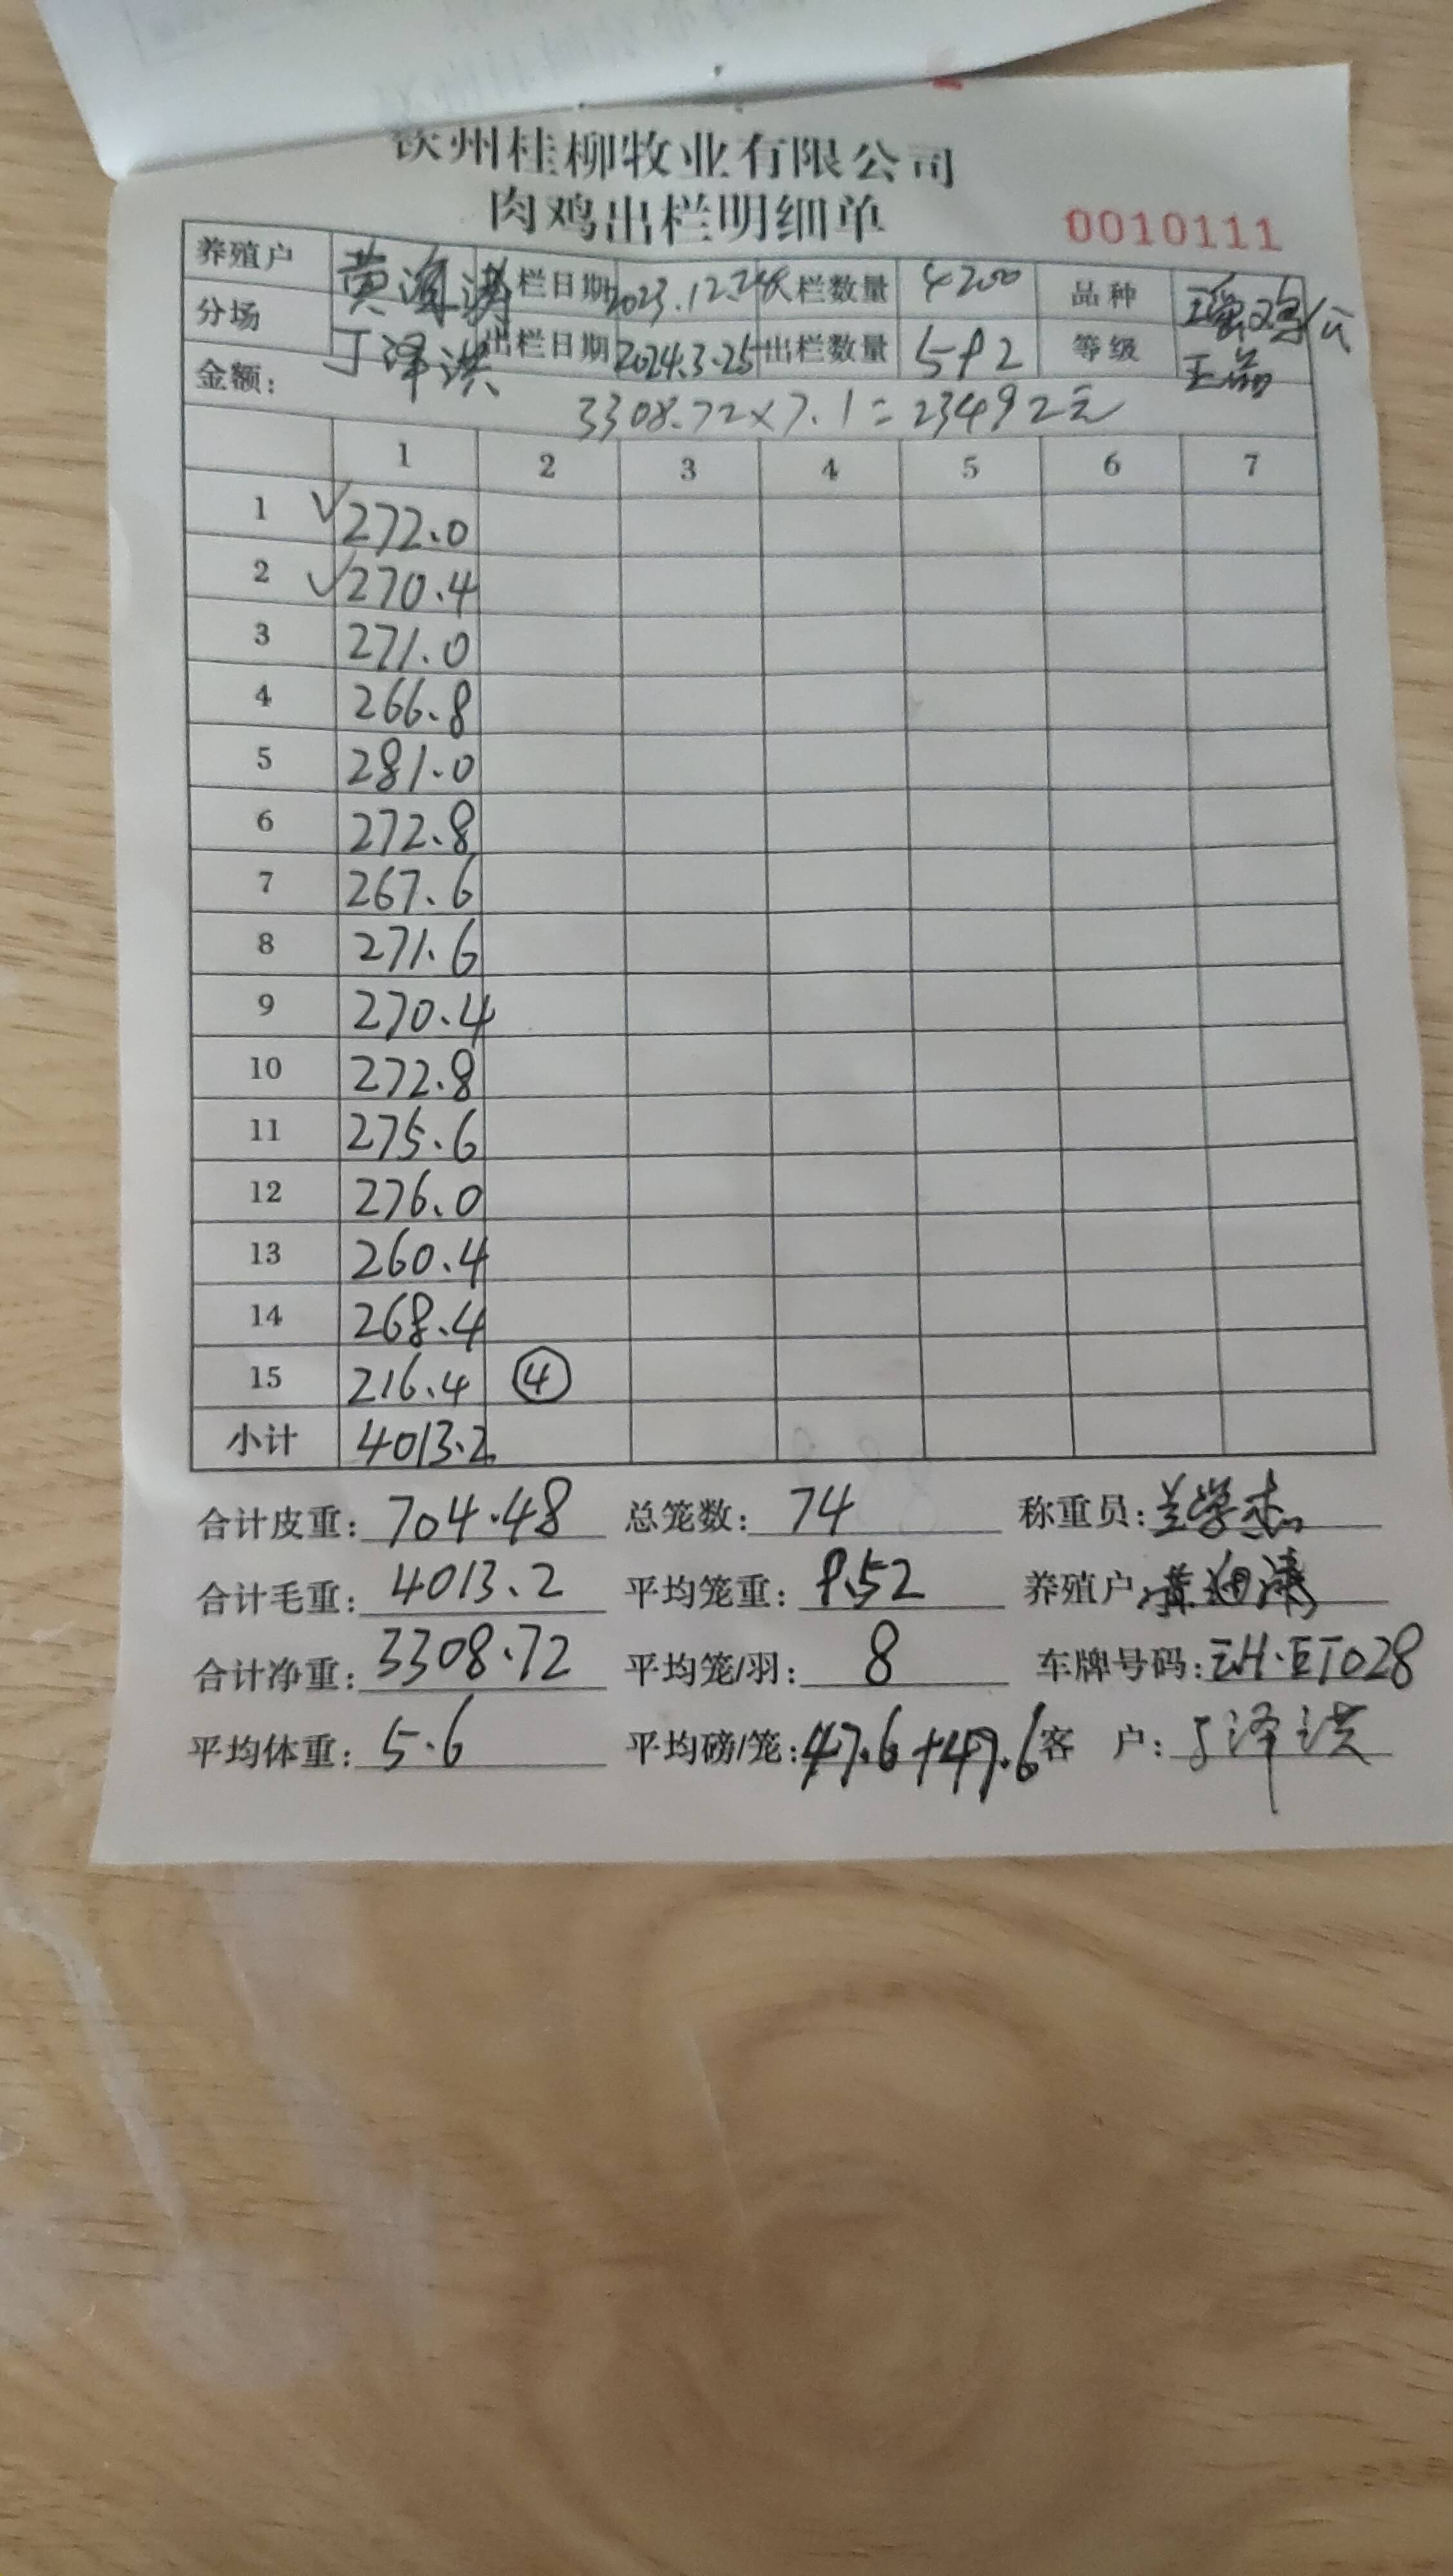 钦州桂柳牧业有限公司
肉鸡出栏明细单
0010111
养殖户 黄海清 栏日期 2023.12. 栏数量 4200 品种 瑶鸡公
分场 丁泽洪 出栏日期 2024.3.25 出栏数量 592 等级 正品
金额: 3308.72×7.1=23492元
1 2 3 4 5 6 7
1 √272.0
2 √270.4
3 271.0
4 266.8
5 281.0
6 272.8
7 267.6
8 271.6
9 270.4
10 272.8
11 275.6
12 276.0
13 260.4
14 268.4
15 216.4 ④
小计 4013.2
合计皮重: 704.48 总笼数: 74 称重员: 兰学杰
合计毛重: 4013.2 平均笼重: 9.52 养殖户: 黄海清
合计净重: 3308.72 平均笼/羽: 8 车牌号码:
平均体重: 5.6 平均磅/笼: 47.6+47.6 客 户: 丁泽洪